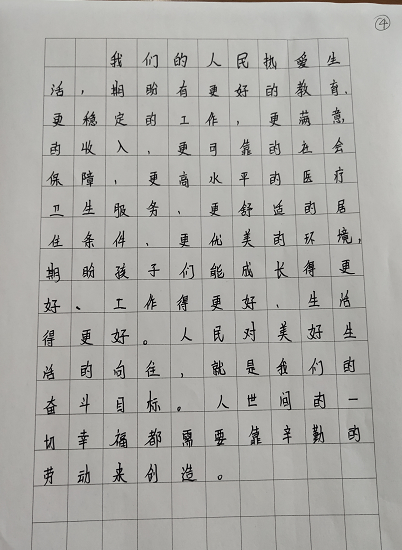 ④
我们的人民热爱生
活，期盼有更好的教育、
更稳定的工作、更满意
的收入、更可靠的社会
保障、更高水平的医疗
卫生服务、更舒适的居
住条件、更优美的环境，
期盼孩子们能成长得更
好、工作得更好、生活
得更好。人民对美好生
活的向往，就是我们的
奋斗目标。人世间的一
切幸福都需要靠辛勤的
劳动来创造。